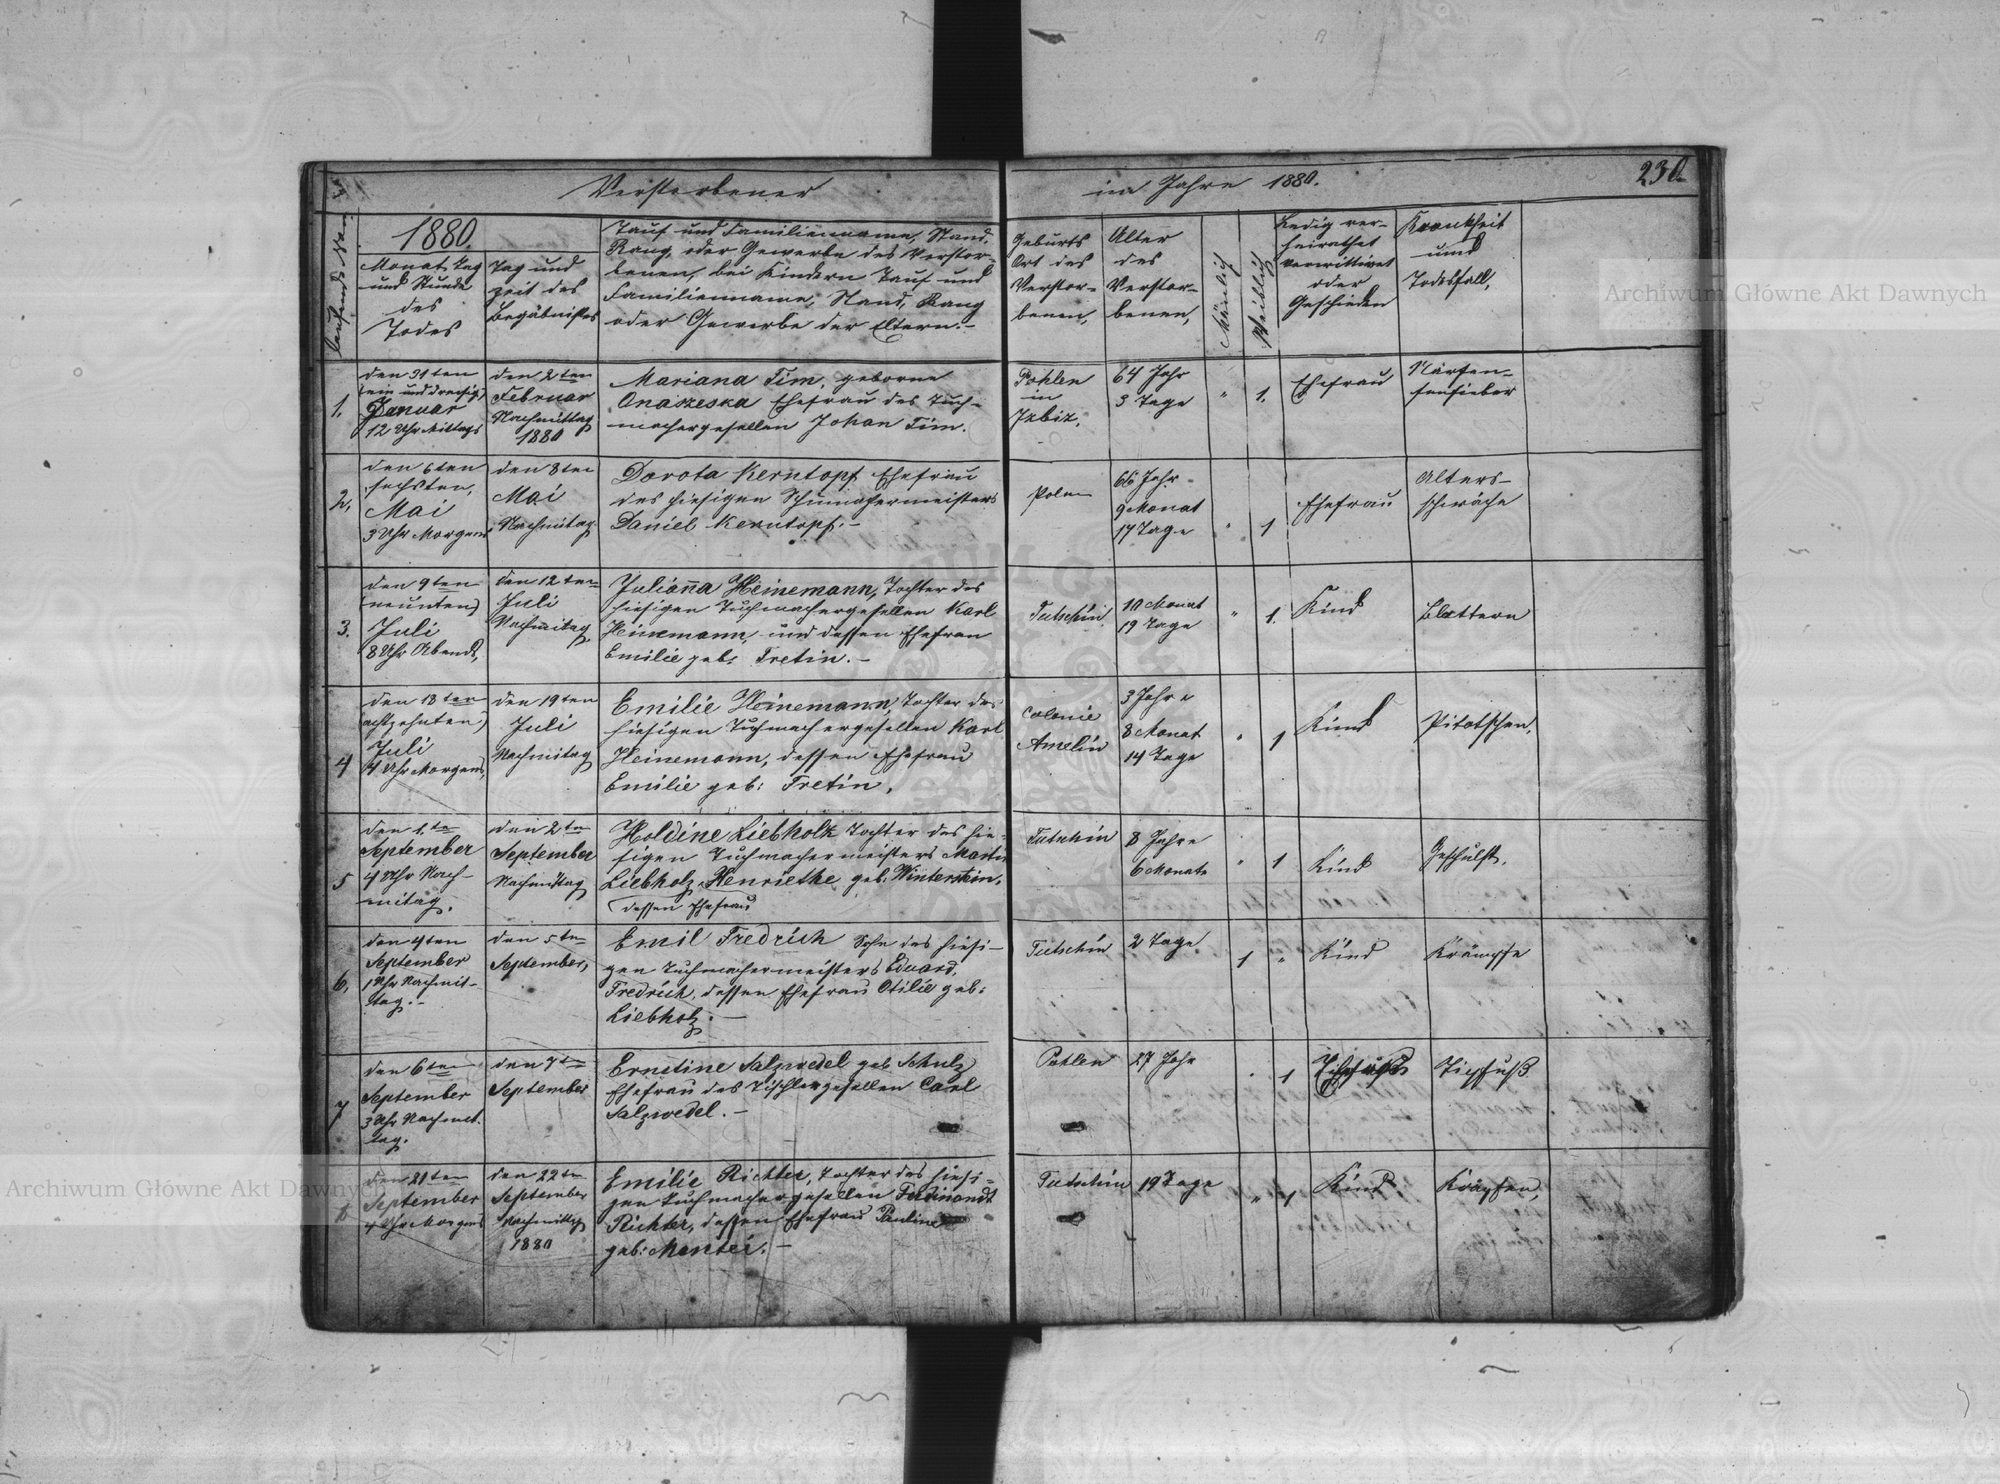 Verstorbener
im Jahre 1880.
230.
laufende Nro
1880.
Monat, Tag
und Stunde
des
Todes
Tag und
Zeit des
Begäbnißes
Tauf und Familienname, Stand,
Rang, oder Gewerbe des Verstor-
benen, bei Kindern Tauf und
Familienname, Stand, Rang
oder Gewerbe der Eltern.-
Geburts
Ort des
Verstor-
benen,
Alter
des
Verstor-
benen,
Mänlich
Weiblich
Ledig ver-
heirathet
verwittivet
oder
Geschieden
Krankheit
und
Todesfall,
1.
den 31ten
(ein und dreisig)
Januar
12 Uhr Mittags
den 2ten
Februar
Nachmittag
1880
Mariana Tim, geborne
Onaszeska Ehefrau des Tuch-
machergesellen Johan Tim.
Pohlen
in
Izbiz.
64 Jahr
3 Tage
"
1.
Ehefrau
2,
den 6ten
sechsten,
Mai
3 Uhr Morgens
den 8ten
Mai
Nachmitag
Dorota Kerntopf Ehefrau
des hiesigen Schumachermeisters
Daniel Kerntopf.-
Polen
66 Jahr
9 Monat
17 Tage
"
1
Ehefrau
Alters-
schwäche
3.
den 9ten
(neunten)
Juli
8 Uhr Abends,
den 12ten
Juli
Nachmitag
Julianna Heinemann, Tochter des
hiesigen Tuchmachergesellen Karl
Heinemann, und dessen Ehefrau
Emilie geb: Tretin.-
Tutschin.
10 Monat
19 Tage
"
1.
Kind
Blattern
4
den 18ten
(achtzehnten)
Juli
4 Uhr Morgens,
den 19ten
Juli
Nachmitag
Emilie Heinemann, Tochter des
hiesigen Tuchmachergesellen Karl
Heinemann, dessen Ehefrau
Emilie geb: Tretin,
Colonie
Amelin
3 Jahre
8 Monat
14 Tage
"
1
Kind
5
den 1.te
September
4 Uhr Nach-
mitag.
den 2ten
September
Nachmittag
Holdine Liebholz Tochter des hie-
sigen Tuchmachermeisters Martin
Liebholz, Henriethe geb: Winterstein,
dessen Ehefrau
Tutschin
8 Jahre
6 Monate
"
1
Kind
Geschulst.
6,
den 4ten
September
1 Uhr Nachmit-
tag.-
den 5ten
September,
Emil Fredrich Sohn des hiesi-
gen Tuchmachermeisters Eduard,
Fredrich, dessen Ehefrau Otilie geb:
Liebholz.-
Tutschin
2 Tage
1
"
Kind
Krämpfe
7
den 6ten
September
3 Uhr Nachmit.
tag.
den 7ten
September
Ernetine Salzwedel geb Schulz
Ehefrau des Tischlergesellen Carl
Salzwedel.-
Pohlen
27 Jahr
"
1
8
den 21ten
September
4 Uhr Morgens
den 22ten
September
Nachmittag
1880
Emilie Richter, Tochter des hiesi-
gen Tuchmachergesellen Ferdinandt
Richter, dessen Ehefrau Pauline
geb: Mantei.-
Tutschin
19 Tage
"
1
Kind
Archiwum Główne Akt Dawnych
Archiwum Główne Akt Dawnych